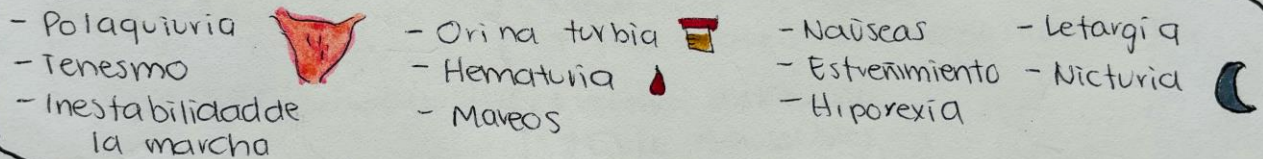 - Polaquiuria
- Tenesmo
- Inestabilidad de
la marcha
- Orina turbia
- Hematuria
- Mareos
- Naúseas
- Estreñimiento
- Hiporexia
- Letargia
- Nicturia